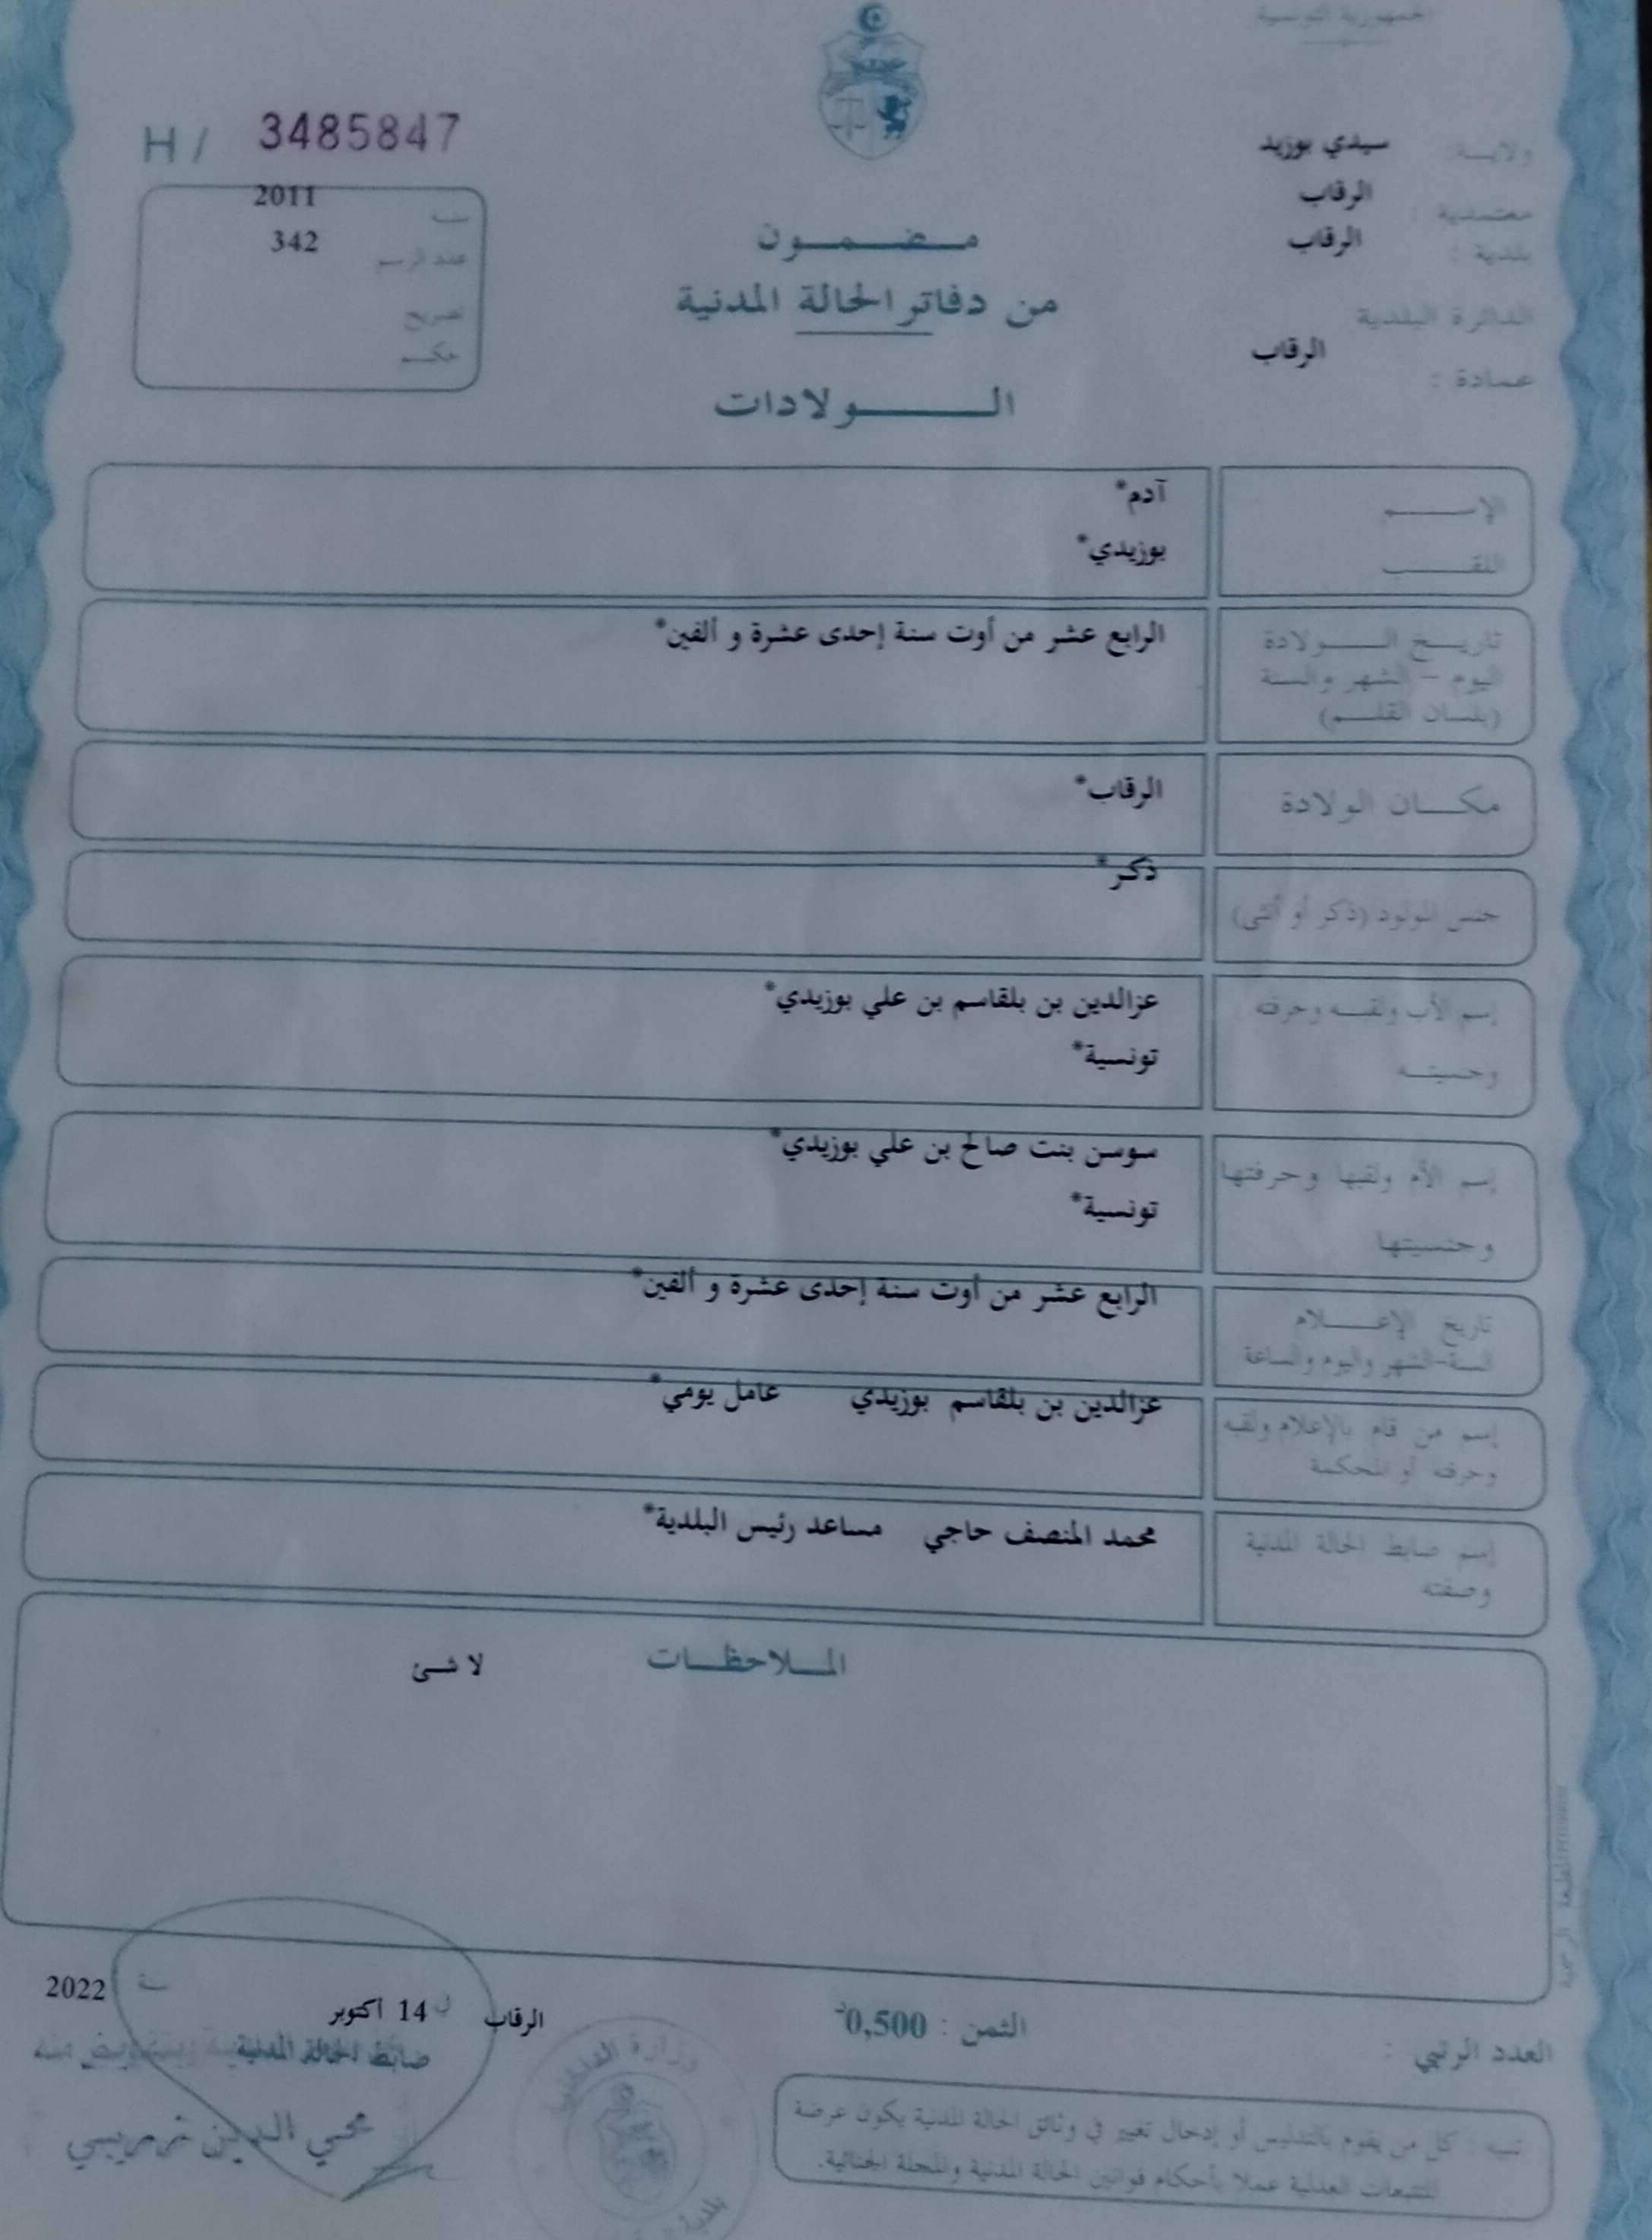 الجمهورية التونسية
ولايـة: سيدي بوزيد
معتمدية : الرقاب
بلدية : الرقاب
الدائرة البلدية
عمادة : الرقاب
H / 3485847
سنة 2011
عدد الرسم 342
تصريح
حكم
مضمون
من دفاتر الحالة المدنية
الولادات
الإسم آدم*
اللقب بوزيدي*
تاريخ الولادة الرابع عشر من أوت سنة إحدى عشرة و ألفين*
اليوم - الشهر والسنة
(بلسان القلم)
مكان الولادة الرقاب*
جنس المولود (ذكر أو أنثى) ذكر*
إسم الأب ولقبه وحرفته عزالدين بن بلقاسم بن علي بوزيدي*
وجنسيته تونسية*
إسم الأم ولقبها وحرفتها سوسن بنت صالح بن علي بوزيدي*
وجنسيتها تونسية*
تاريخ الإعلام الرابع عشر من أوت سنة إحدى عشرة و ألفين*
السنة-الشهر واليوم والساعة
إسم من قام بالإعلام ولقبه عزالدين بن بلقاسم بوزيدي عامل يومي*
وحرفته أو المحكمة
إسم ضابط الحالة المدنية محمد المنصف حاجي مساعد رئيس البلدية*
وصفته
الملاحظات لا شئ
الرقاب في 14 أكتوبر سنة 2022
ضابط الحالة المدنية
محي الدين
وزارة الداخلية
بلدية
الثمن : 0,500د
العدد الرتبي :
تنبيه : كل من يقوم بالتدليس أو إدخال تغيير في وثائق الحالة المدنية يكون عرضة
للتتبعات العدلية عملا بأحكام قوانين الحالة المدنية والمجلة الجنائية.
المطبعة الرسمية